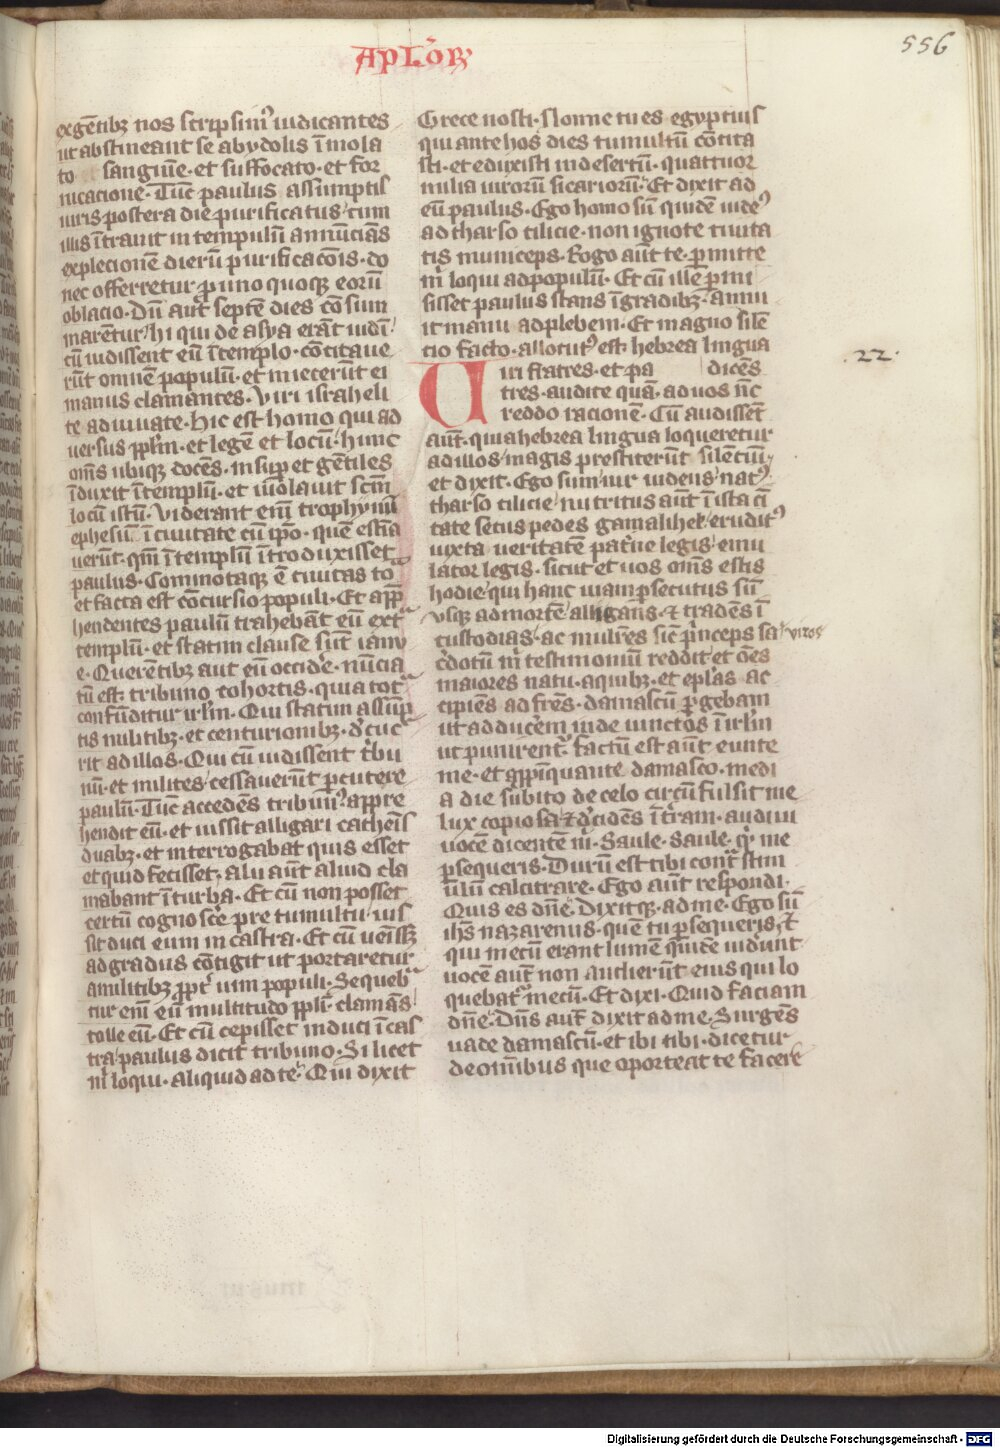 APLōꝝ
556
ex gētibꝫ nos scripsimꝰ iudicantes
ut abstineant se ab ydolis īmola
to sanguīe · et suffocato · et for
nicacione · Tūc paulus assumptis
uiris postera die purificatus cum
illis ītrauit in templum annūcians
explecionē dierū purificacōis · do
nec offerretur pro uno quoqꝫ eorū
oblacio · Dū aut̄ septē dies cōsum
marētur / hi qui de asya erāt iudei
cū uidissent eū ī templo · cōcitaue
rūt omnem populū · et miecerūt ei
manus clamantes · Viri israheli
te adiuuate · hic est homo qui ad
uersus pplm̄ · et legē et locū hunc
om̄s ubiqꝫ docēs · insup et gētiles
īduxit ī templū · et uiolauit scm̄
locū istū · Viderant enī trophymū
ephesiū ī ciuitate cū ipo · quē estīa
uerūt · qm̄ ī templū ītroduxisset
paulus · Commotaqꝫ ē ciuitas to
et facta est cōcursio populi · Et app
hendentes paulū trahebāt eū extra
templū · et statim clause sūt ianu
e · Querētibꝫ aut eū occidere · nūcia
tū est tribuno cohortis · quia tota
confūditur irlm̄ · Qui statim assūp
tis militibꝫ · et centurionibꝫ · decuc
rit ad illos · Qui cū uidissent tribu
nū · et milites cessauerūt percutere
paulū · Tūc accedēs tribunꝰ appre
hendit eū · et iussit alligari cathenis
duabꝫ · et interrogabat quis esset
et quid fecisset · alii aūt aliud cla
mabant ī turba · Et cū non posset
certū cognoscere pre tumultu · ius
sit duci eum in castra · Et cū uenissꝫ
ad gradus cōtigit ut portaretur
a militibꝫ ppt̄ uim populi · Sequeba
tur enī eū multitudo ppli · clamās
tolle eū · Et cū cepisset induci ī cas
tra paulus dicit tribuno · Si licet
m̄ loqui · aliquid ad te · Qui dixit
Grece nosti · Nonne tu es egyptius
qui ante hos dies tumultū cōcita
sti · et eduxisti in desertū · quattuor
milia uirorū sicariorū · Et dixit ad
eū paulus · Ego homo sū quidē iudeꝰ
ad tharso cilicie · non ignote ciuita
tis municeps · Rogo aūt te · pmitte
m̄ loqui ad populū · Et cū ille pmi
sisset paulus stans ī gradibꝫ · annu
it manu ad plebem · Et magno silē
cio facto · allocutꝰ est hebrea lingua
22 ·
Uiri fratres · et pa dicēs
tres · audite quā · ad uos nūc
reddo racionē · Cū audissēt
aūt · quia hebrea lingua loqueretur
ad illos / magis prestiterūt silētiū
et dixit · Ego sum uir iudeus natꝰ
tharso cilicie / nutritus aūt ī ista ci
tate secus pedes gamalihel / eruditꝰ
iuxta ueritatē paterne legis / emu
lator legis · sicut et uos om̄s estis
hodie / qui hanc uiam psecutus sū
usqꝫ ad mortē alligans · et tradēs ī
custodias · ac mulires sicut princeps sa
viros
cerdotū m̄ testimoniū reddit · et oēs
maiores natu · a quibꝫ · et eplas ac
cipiēs ad frēs · damascū pergebam
ut adducerem inde uinctos ī irlm̄
ut punirentur · factū est aūt eunte
me · et appinquante damasco · medi
a die subito de celo circūfulsit me
lux copiosa et decidēs ī terram · audiui
uocē dicentē m̄ · Saule · Saule · qr me
psequeris · Durū est tibi contra stim
ulū calcitrare · Ego aūt respondi ·
Quis es dn̄e · Dixitqꝫ · ad me · Ego sū
ihs̄ nazarenus · quē tu psequeris · Et
qui mecū erant lumē quidē uiderūt
uocē aūt non audierūt eius qui lo
quebatur mecū · Et dixi · Quid faciam
dn̄e · Dn̄s aut̄ dixit ad me · Surgēs
uade damascū · et ibi tibi · dicetur
de omībus que oporteat te facere
Digitalisierung gefördert durch die Deutsche Forschungsgemeinschaft - DFG